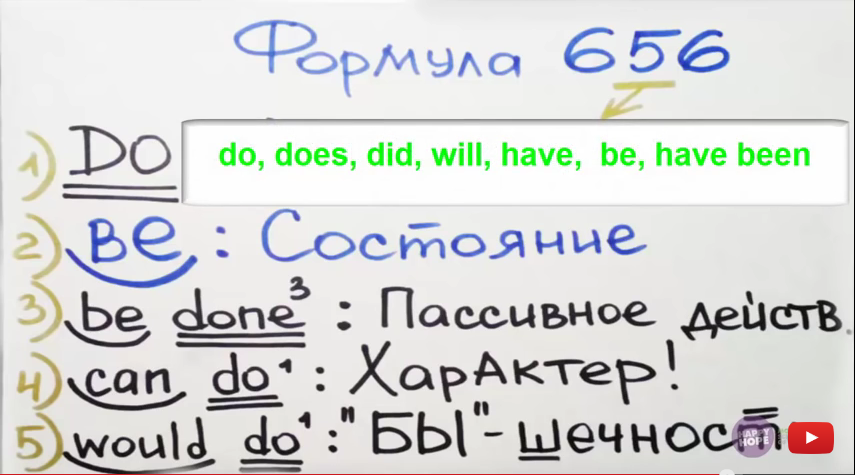 Формула 656
1) DO do, does, did, will, have, be, have been
2) Be : Состояние
3) be done³ : Пассивное действ.
4) can do¹ : ХарАктер!
5) would do¹ : "БЫ"-шечност
HAPPY HOPE